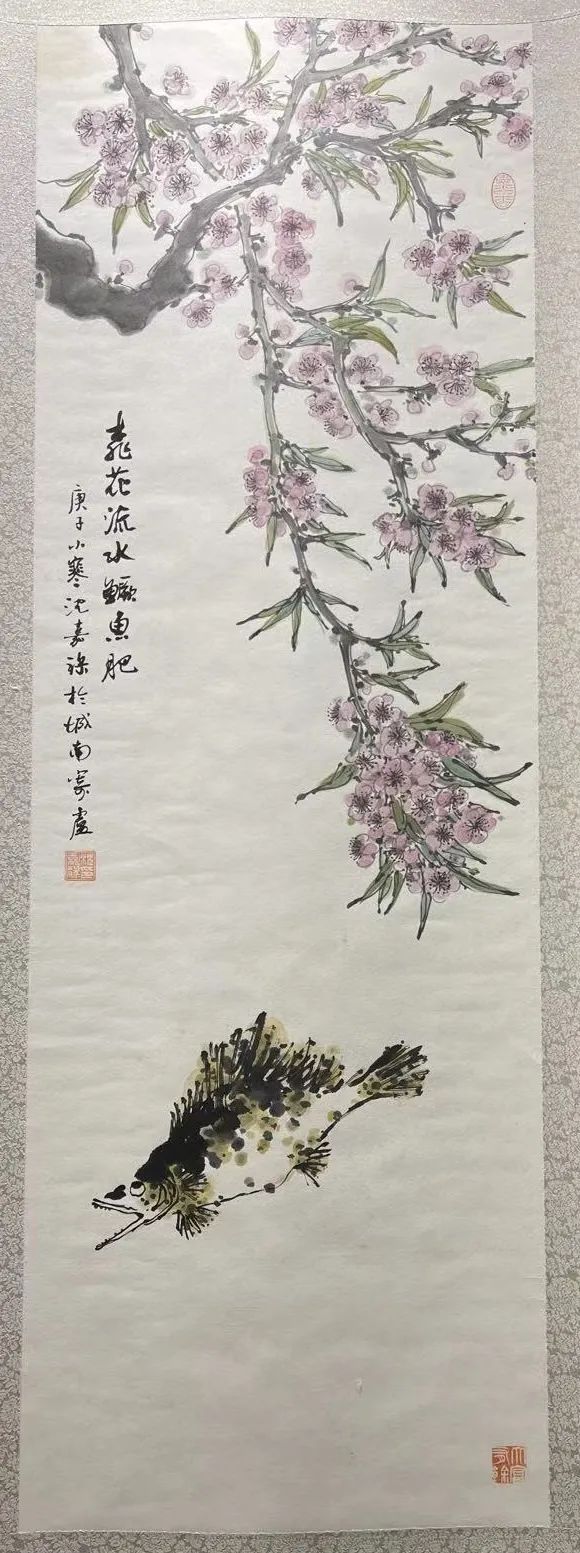 桃花流水鳜鱼肥
庚子小寒沈嘉禄於城南寄庐